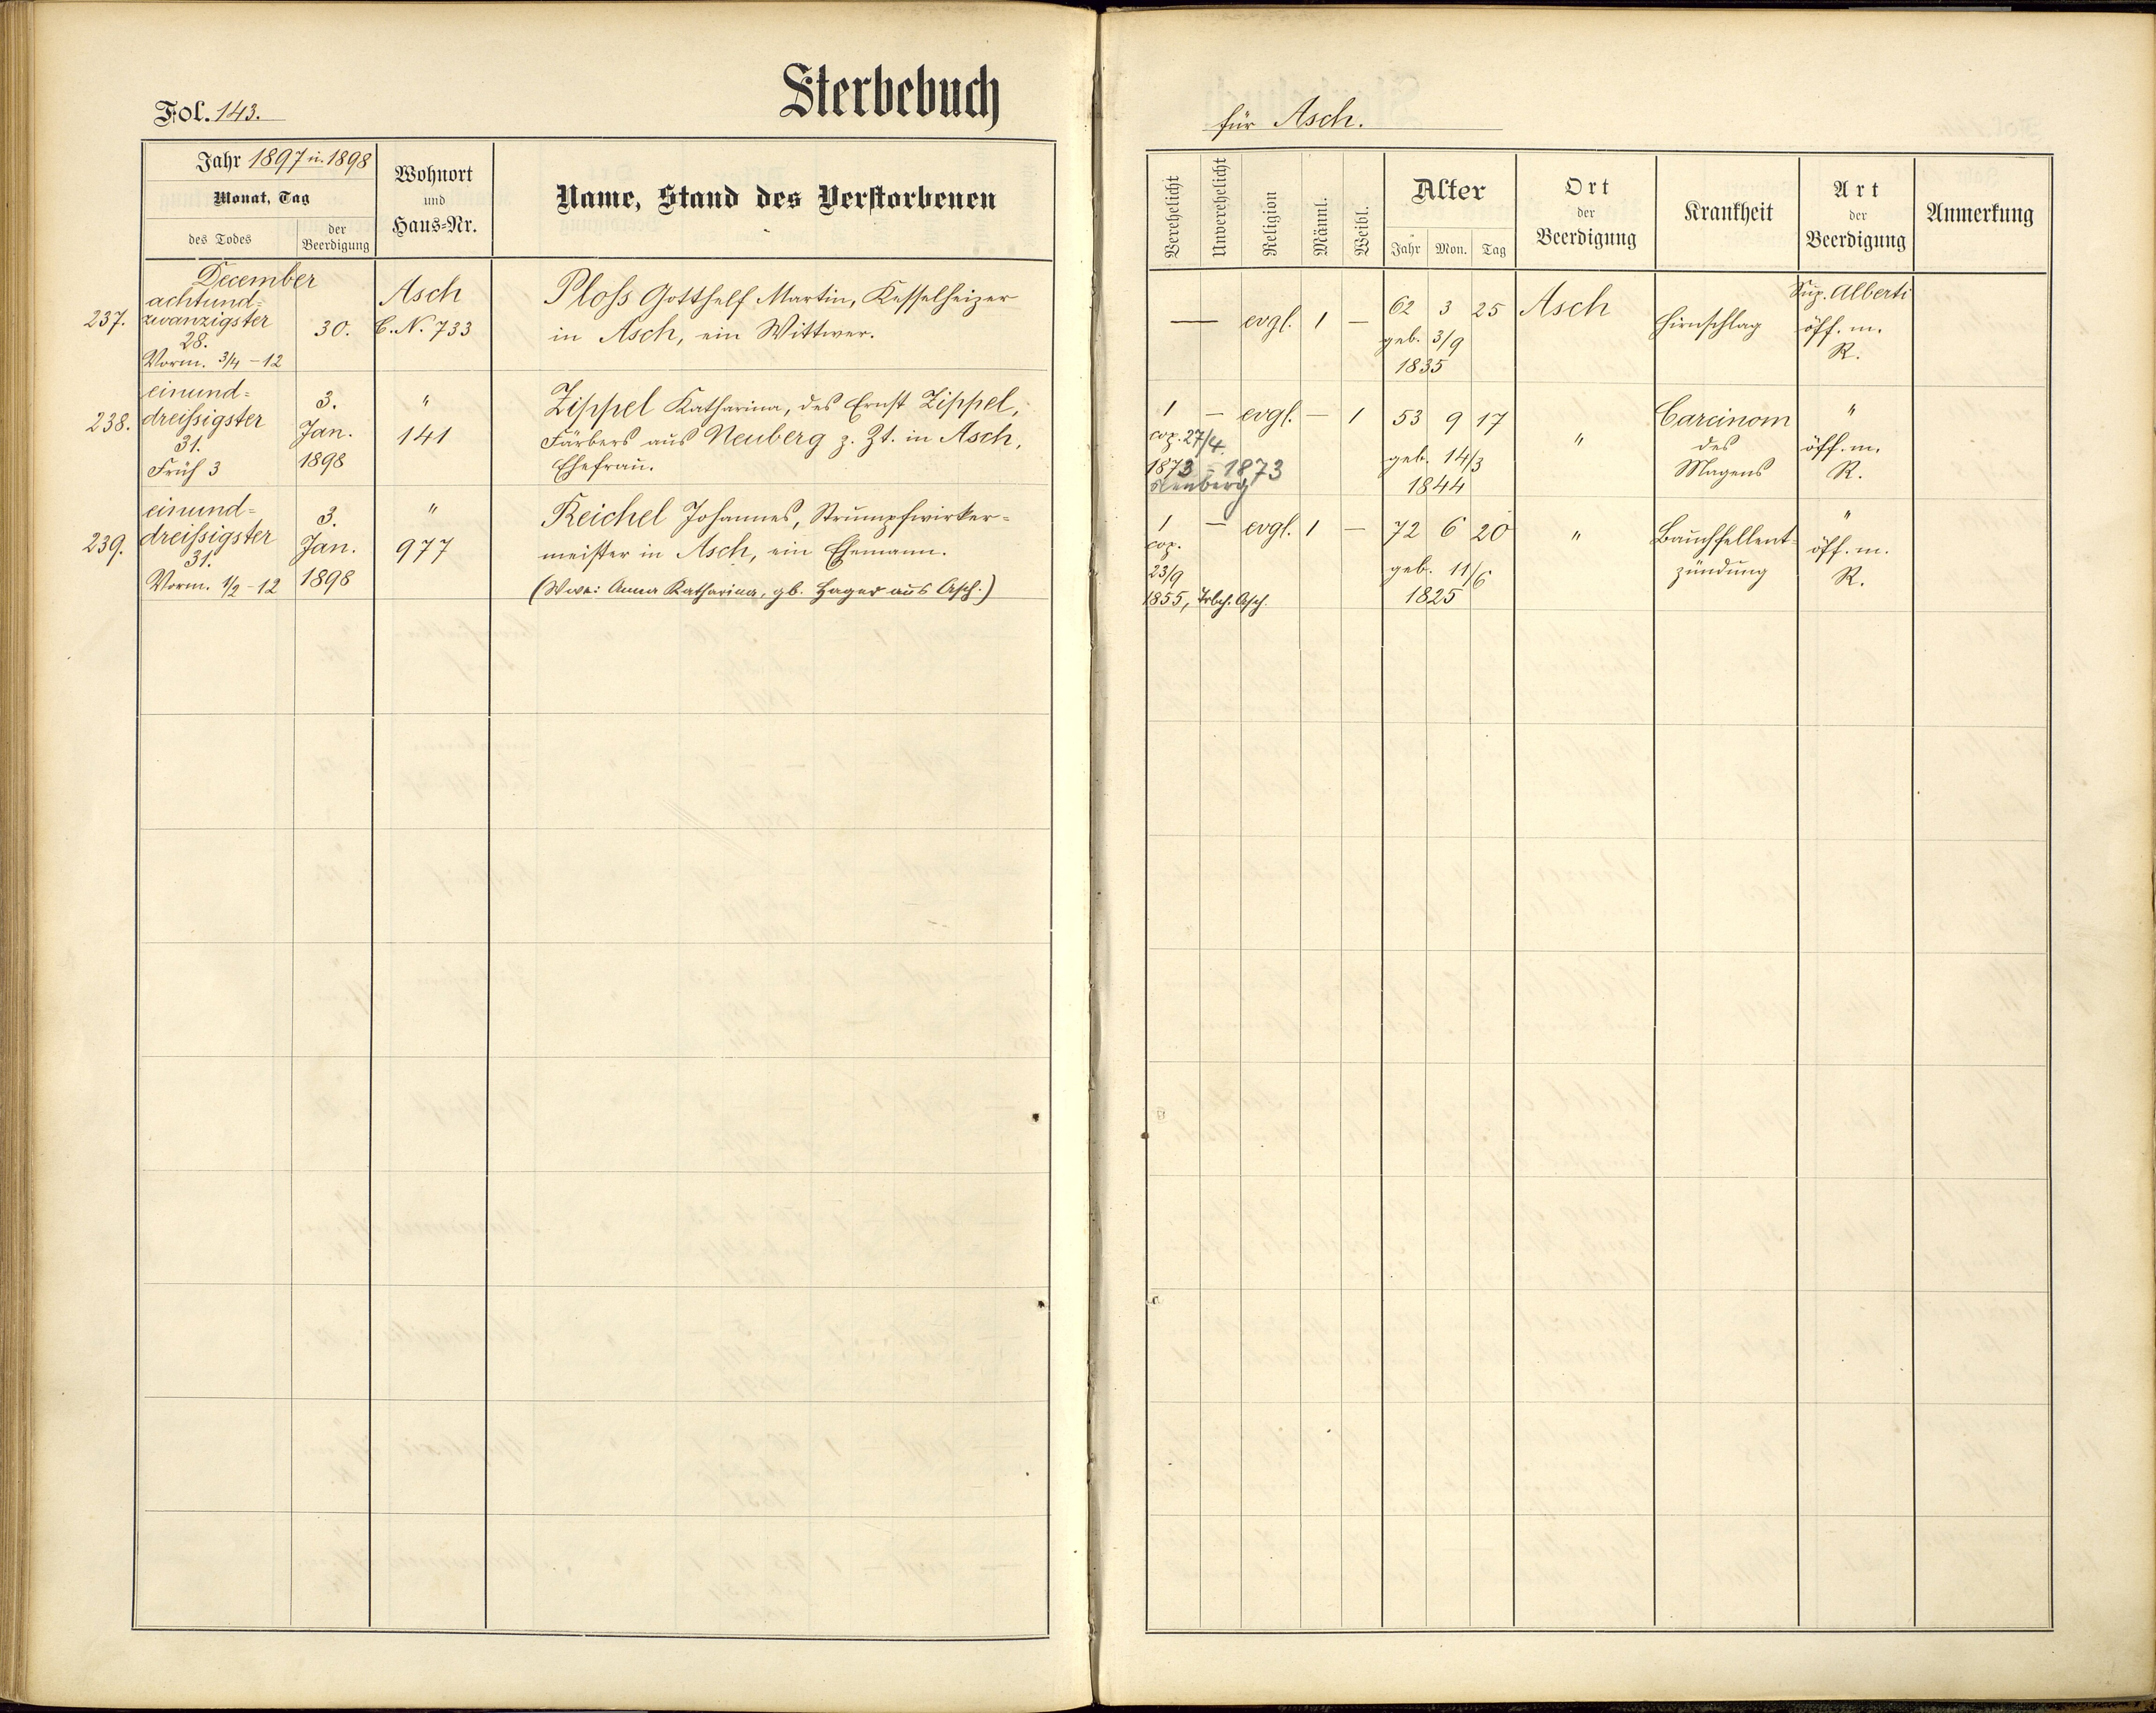 Sterbebuch
Fol. 143.
für Asch.
Jahr 1897 u. 1898
Monat, Tag
des Todes
der Beerdigung
Wohnort
und
Haus=Nr.
Name, Stand des Verstorbenen
Verehelicht
Unverehelicht
Religion
Männl.
Weibl.
Alter
Jahr Mon. Tag
Ort
der
Beerdigung
Krankheit
Art
der
Beerdigung
Anmerkung
December
237.
achtund=
zwanzigster
28.
Vorm. 3/4 - 12
30.
Asch
C.N. 733
Ploß Gotthelf Martin, Kesselheizer
in Asch, ein Wittwer.
— evgl. 1 —
62 3 25
geb. 3/9
1835
Asch
Hirnschlag
Sup. Alberti
öff. m.
R.
238.
einund=
dreißigster
31.
Früh 3
3.
Jan.
1898
"
141
Zippel Katharina, des Ernst Zippel,
Färbers aus Neuberg z. Zt. in Asch,
Ehefrau.
1 — evgl. — 1
cop. 27/4.
1873 - 1873
Neuberg
53 9 17
geb. 14/3
1844
"
Carcinom
des
Magens
"
öff. m.
R.
239.
einund=
dreißigster
31.
Vorm. 1/2 - 12
3.
Jan.
1898
"
977
Reichel Johannes, Strumpfwirker=
meister in Asch, ein Ehemann.
(Wwe: Anna Katharina, gb. Hager aus Asch.)
1 — evgl. 1 —
cop.
23/9
1855, Trbch. Asch.
72 6 20
geb. 11/6
1825
"
Bauchfellent=
zündung
"
öff. m.
R.